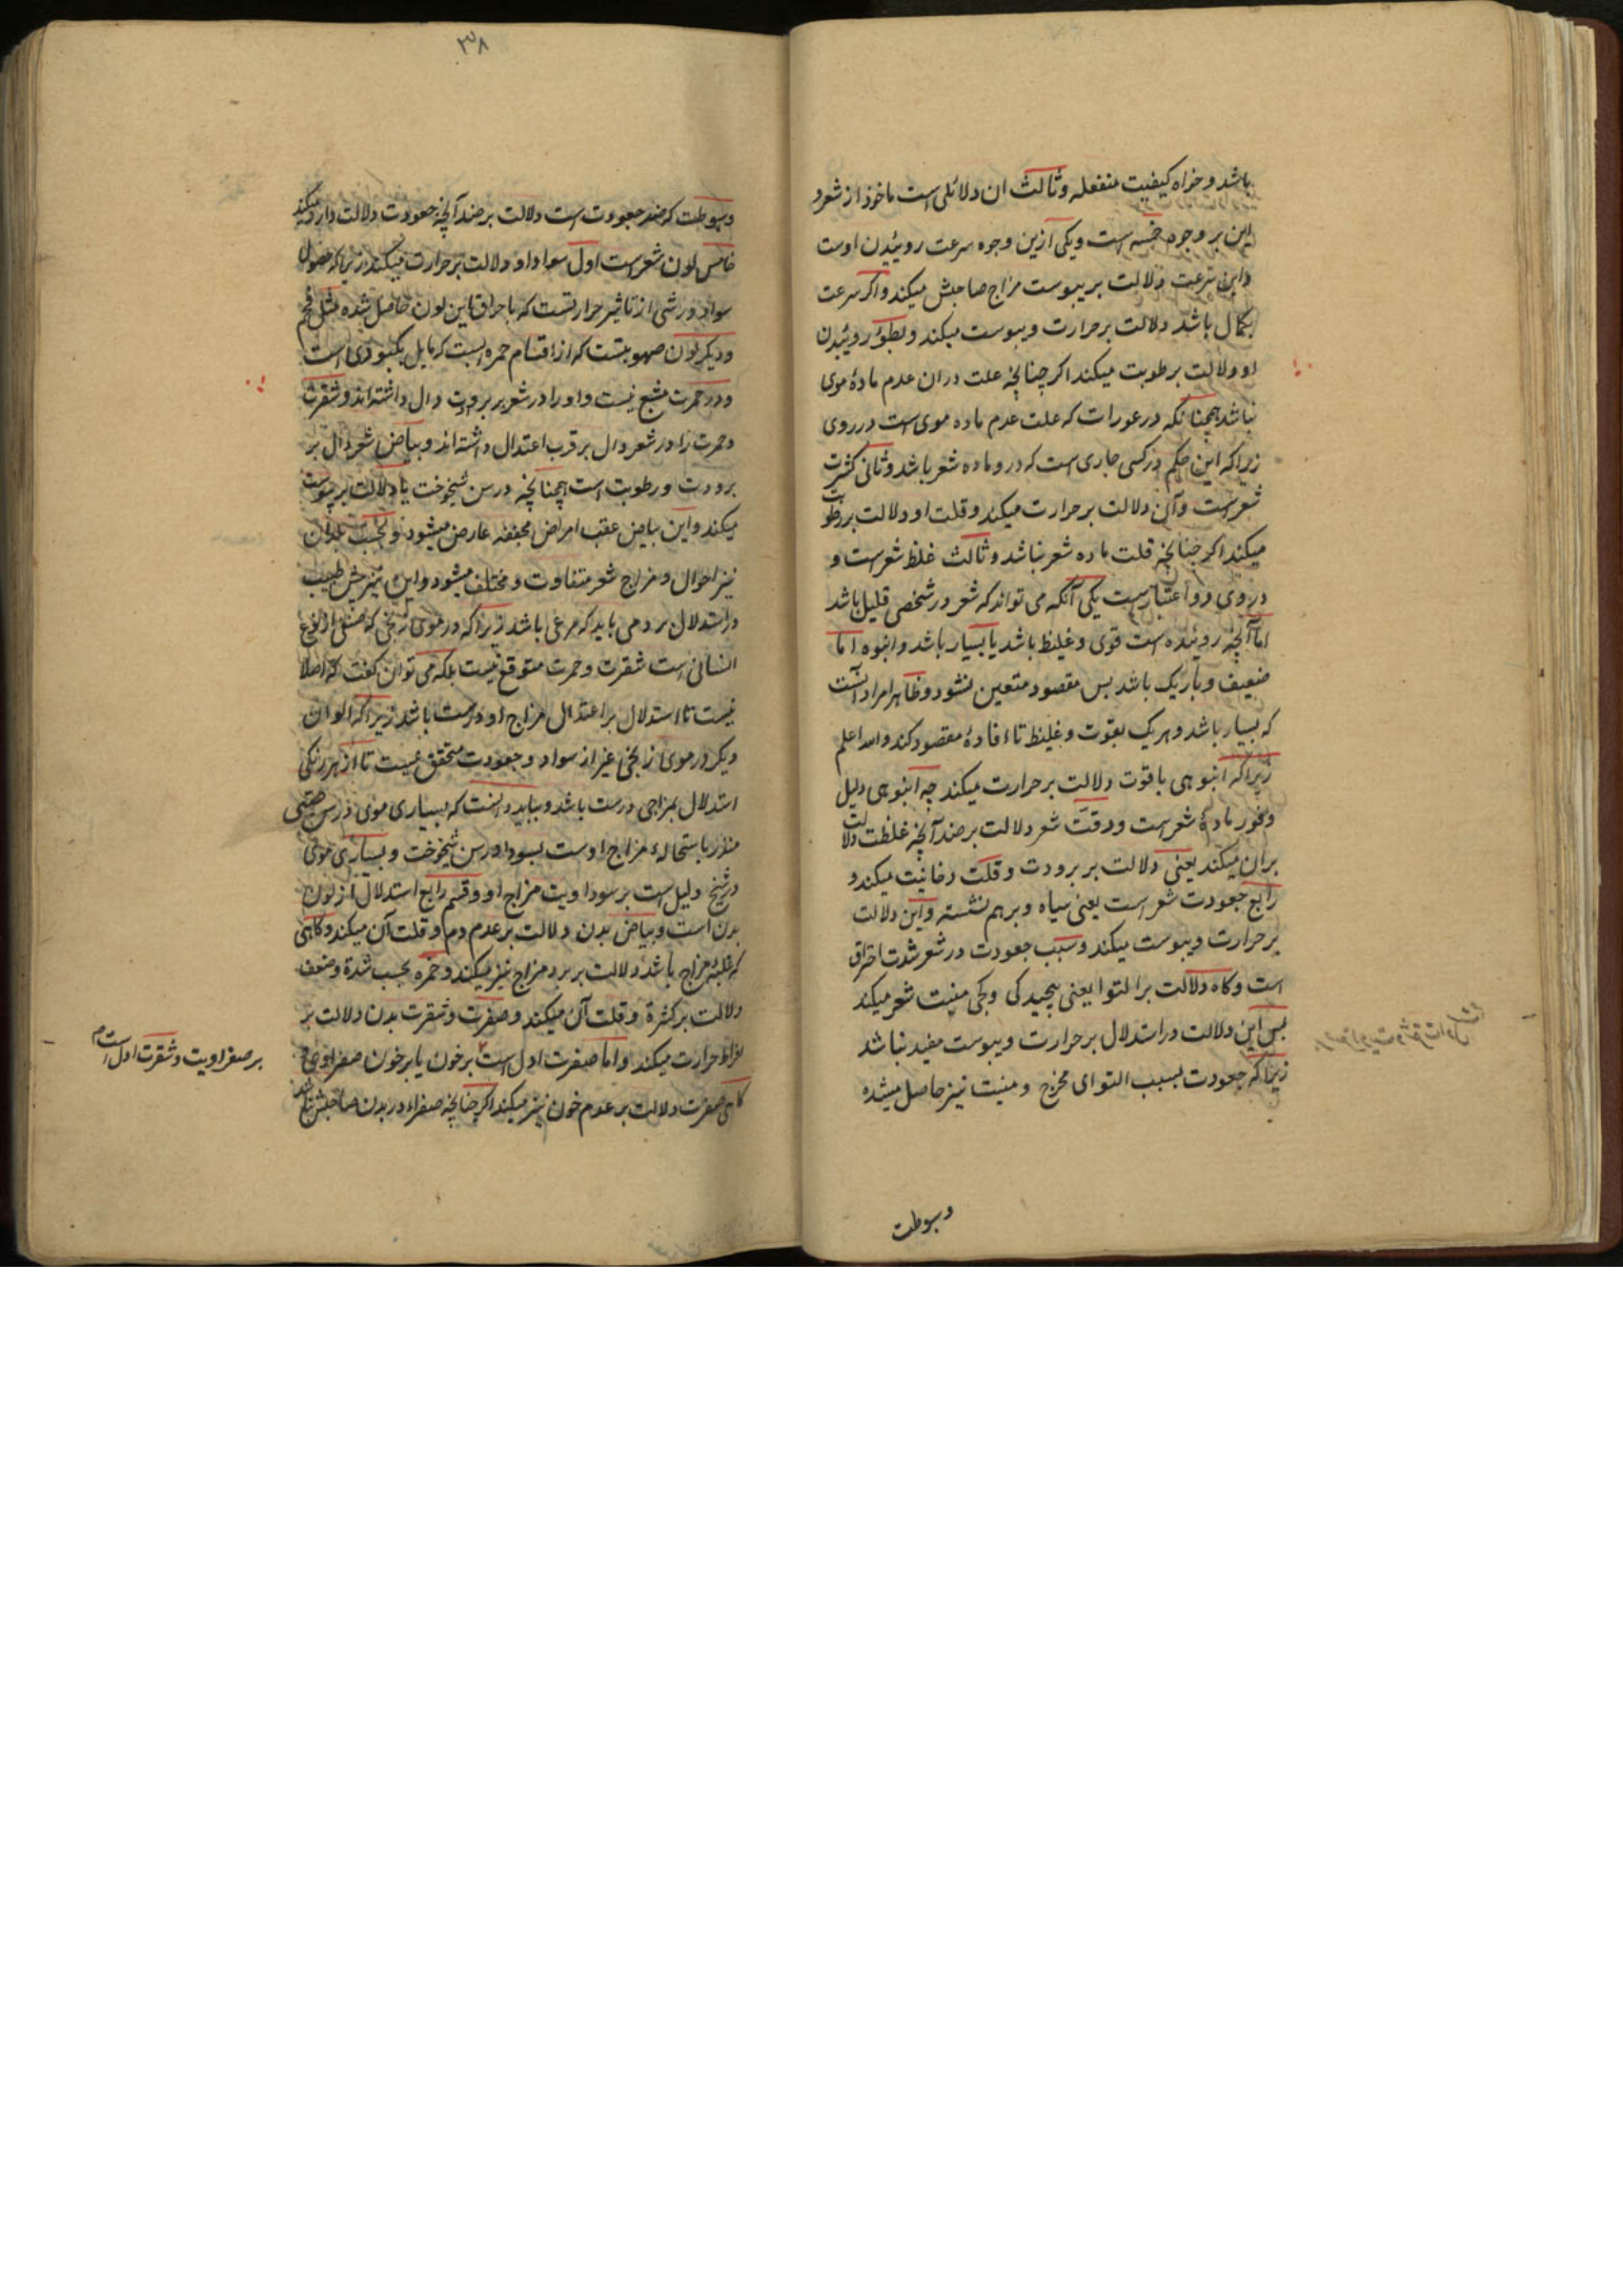 باشد و خواه کیفیت منفعله و ثالث ان دلائلی است ماخوذ از شعر و
این بر وجوه خمسه است و یکی ازین وجوه سرعت روئیدن اوست
و این سرعت دلالت بر یبوست مزاج صاحبش میکند و اکر سرعت
بکمال باشد دلالت بر حرارت و یبوست میکند و بطوٴ روئیدن
او دلالت بر طوبت میکند اکر چنانچه علت دران عدم مادهٔ موی
نباشد همچنانکه در عورات که علت عدم ماده موی است در روی
زیراکه این حکم در کسی جاری است که در و ماده شعر باشد و ثانی کثرت
شعر است و آن دلالت بر حرارت میکند و قلت او دلالت بر رطوبت
میکند اکر چنانچه قلت ماده شعر نباشد و ثالث غلظ شعر است و
در وی دو اعتبار است یکی آنکه می تواند که شعر در شخصی قلیل باشد
اما آنچه روئیده است قوی و غلیظ باشد یا بسیار باشد و انبوه اما
ضعیف و باریک باشد بس مقصود متعین نشود و ظاهر امراد آنست
که بسیار باشد و هر یک بقوت و غلیظ تا افادهٔ مقصود کند و الله اعلم
زیراکه انبوهی با قوت دلالت بر حرارت میکند چه انبوهی دلیل
وفور مادهٔ شعر است و دقت شعر دلالت بر ضد آنچه غلظت دلالت
بران میکند یعنی دلالت بر برودت و قلت دخانیت میکند و
رابع جعودت شعر است یعنی سیاه و برهم نشسته و این دلالت
بر حرارت و یبوست میکند و سبب جعودت در شعر شدت احتراق
است و کاه دلالت بر التوا یعنی پیچیدکی و کجی منبت شعر میکند
بس این دلالت در استدلال بر حرارت و یبوست مفید نباشد
زیراکه جعودت بسبب التوای مخرج و منبت نیز حاصل میشده
وسبوطت
۳۸
وسبوطت که ضد جعودت است دلالت بر ضد آنچه جعودت دلالت دارد میکند
خامس لون شعر است اول سواد او دلالت بر حرارت میکند زیراکه حصول
سواد در شی از تاثیر حرارتست که باحراق این لون حاصل شده مثل فحم
و دیکر لون صهوبتست که از اقسام حمره ایست که مایل بکبودی است
و در حمرت مشبع نیست و او را در شعر بر برودت دال داشته اند و شقرت
و حمرت را در شعر دال بر قرب اعتدال داشته اند و بیاض شعر دال بر
برودت و رطوبت است همچنانچه در سن شیخوخت یا دلالت بر یبوست
میکند و این بیاض عقب امراض مجففه عارض میشود و بحسب بلدان
نیز احوال و مزاج شعر متفاوت و مختلف میشود و این نیز بیش طبیب
در استدلال بر دمی باید که مرعی باشد زیراکه در موی زنجی که صنفی از نوع
انسانی است شقرت و حمرت متوقع نیست بلکه می توان کفت که اصلا
نیست تا استدلال بر اعتدال مزاج او درست باشد زیراکه الوان
دیکر در موی زنجی غیر از سواد و جعودت متحقق نیست تا از هر رنکی
استدلال بمزاجی درست باشد و بباید دانست که بسیاری موی در سن صبی
منذر باستحالهٔ مزاج اوست بسودا در سن شیخوخت و بسیاری موی
در شیخ دلیل است بر سوداویت مزاج او و قسم رابع استدلال از لون
بدن است و بیاض بدن دلالت بر عدم دم و قلت آن میکند و کاهی
که غلبهٔ مزاج باشد دلالت بر برد مزاج نیز میکند و حمره بحسب شدة و ضعف
دلالت بر کثرة و قلت آن میکند و صفرت و شقرت بدن دلالت بر
افراط حرارت میکند و اما صفرت ادل است بر خون یا بر خون صفراوی
کاهی صفرت دلالت بر عدم خون نیز میکند اکر چنانچه صفراء در بدن صاحبش نباشد
بر صفراویت و شقرت ادل است م